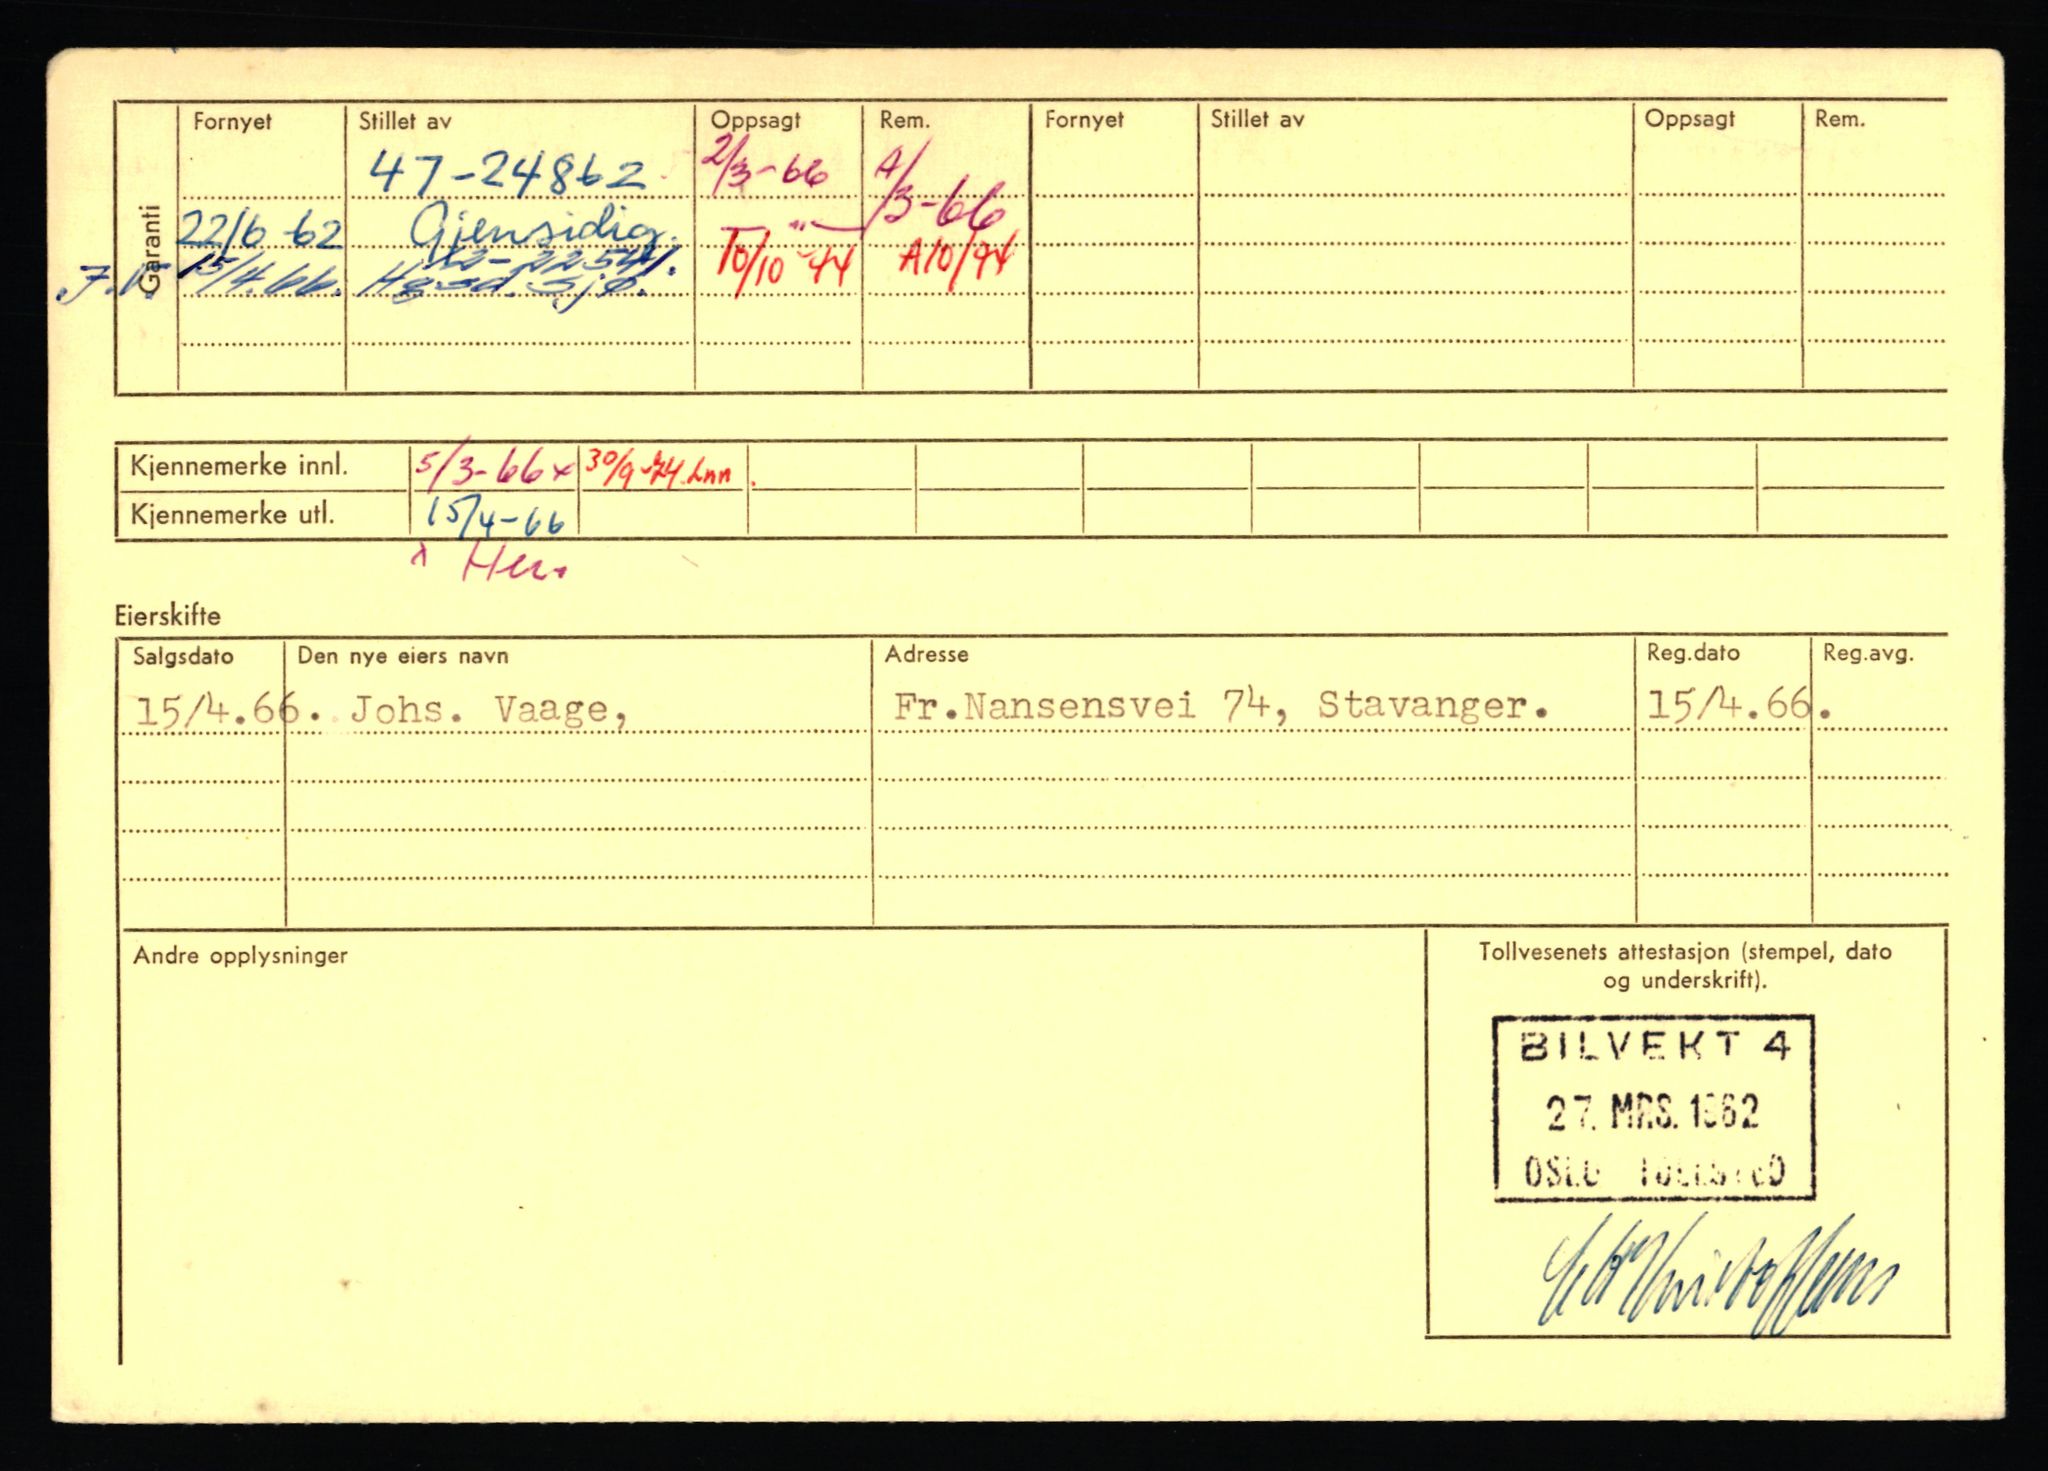 Garanti
Fornyet Stillet av Oppsagt Rem. Fornyet Stillet av Oppsagt Rem.
47-24862 2/3-66 A/3-66
22/6 62 Gjensidig. — " —
15/4.66. Hgsd. Sjø. 10/10 A10/94
Kjennemerke innl. 5/3-66 x 30/9-74. Lnn.
Kjennemerke utl. 15/4-66
x Hen.
Eierskifte
Salgsdato Den nye eiers navn Adresse Reg.dato Reg.avg.
15/4.66. Johs. Vaage, Fr.Nansensvei 74, Stavanger. 15/4.66.
Andre opplysninger
Tollvesenets attestasjon (stempel, dato
og underskrift).
BILVEKT 4
27. MRS. 1962
OSLO TOLLSTED